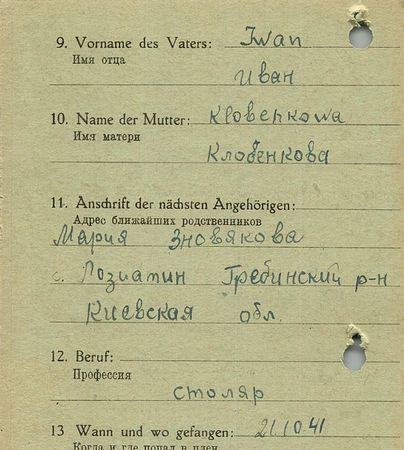 9. Vorname des Vaters: Iwan
Имя отца
Иван
10. Name der Mutter: Klobenkowa
Имя матери
Клобенкова
11. Anschrift der nächsten Angehörigen:
Адрес ближайших родственников
Мария Зновякова
с. Лозиатин Гребинский р-н
Киевская обл.
12. Beruf:
Профессия
столяр
13 Wann und wo gefangen: 21.10.41
Когда и где попал в плен